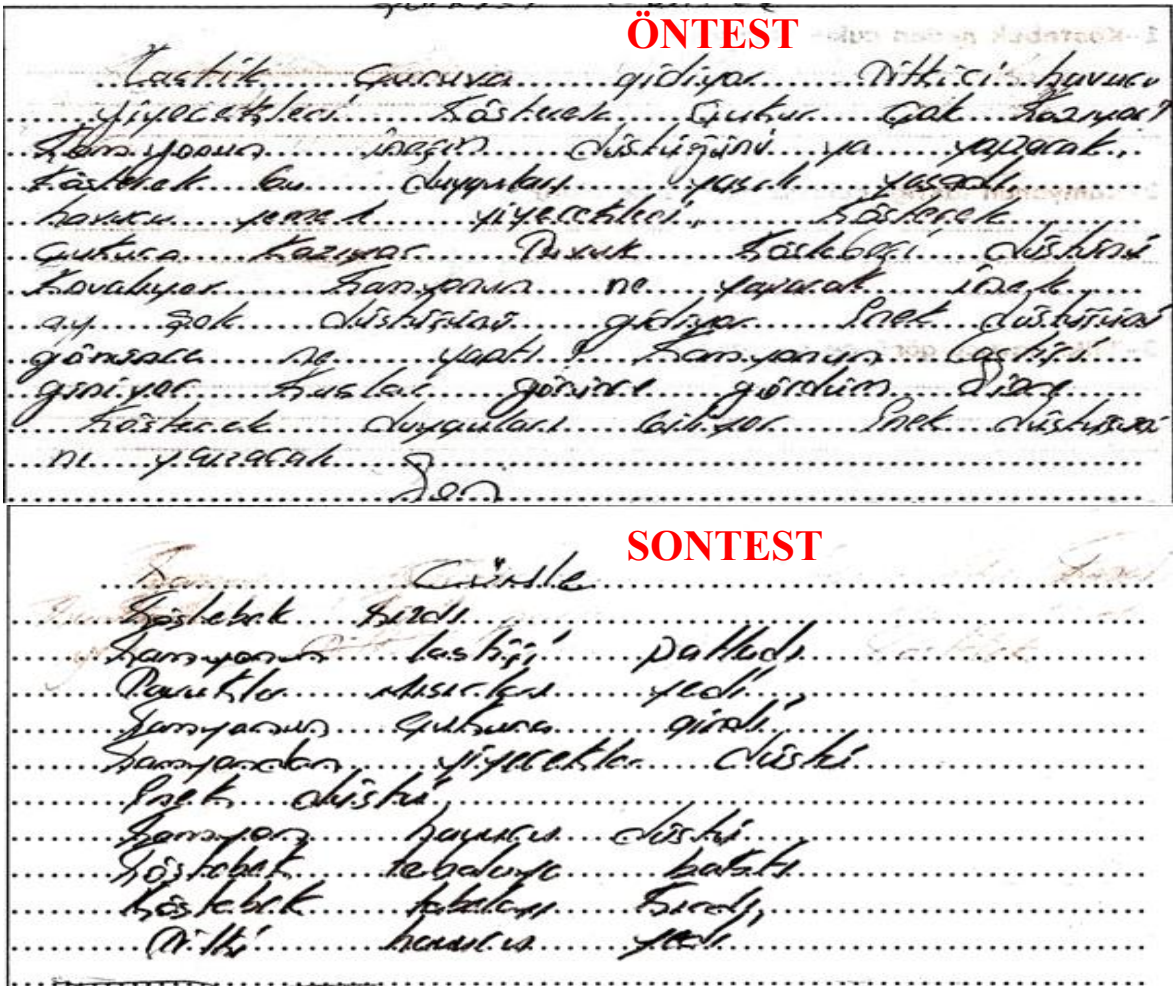 ÖNTEST
Lastik Çuruva gidiyor Titkici havucu
yiyecekleri Kösterek Çukur Çok Kazıyor
Kamyonun ineğin düştüğünü ya yaparak
Kösterek bu duyguları yaşadı
havucu yemek yiyecekleri, Kösterek
Çukura Kazıyor Tavuk Köstebeği düştünü
Kovalıyor Kamyonun ne yaparak inek
ay şok düştüsünü gidiyor İnek düştüsünü
görünce ne yaptı? Kamyonun Lastiği
giriyor Kuşlar görünce gördüm
Kösterek duyguları biliyor İnek düştüsünü
ne yapacak
Son
SONTEST
Cümle
Köstebek kızdı
Kamyonun lastiği patladı
Tavuklar mısırları yedi,
Kamyonun çukura girdi
Kamyondan yiyecekler düştü
İnek düştü,
Kamyon havucu düştü
Köstebek tabelaya baktı
Köstebek tabelayı kırdı,
Tilki havucu yedi